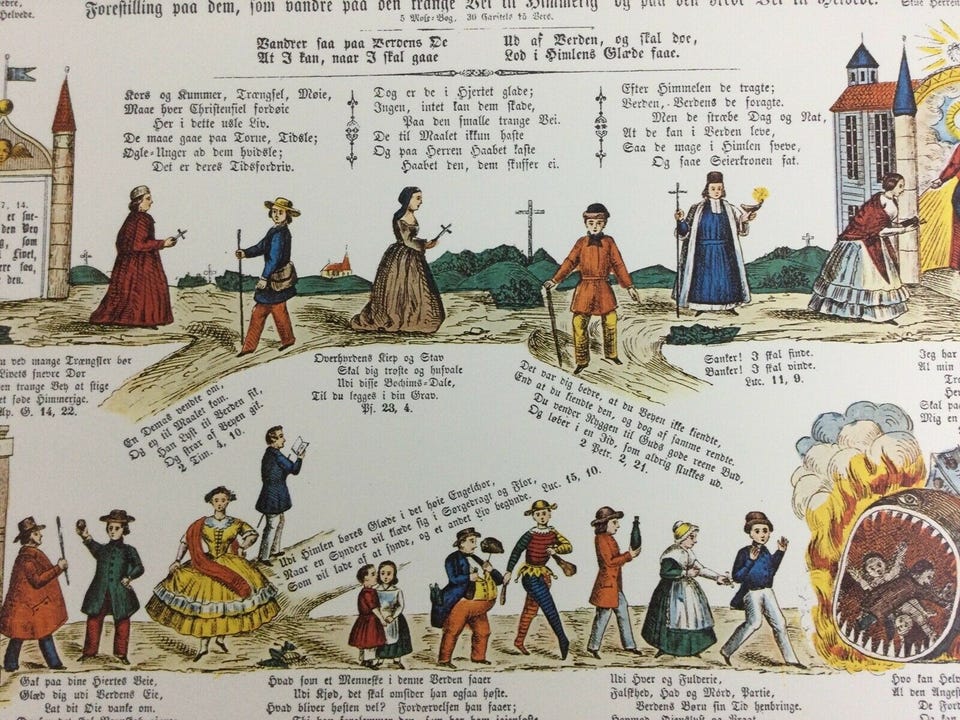 Helvede.
Forestilling paa dem, som vandre paa den trange Vei til Himmerig og paa den brede Vei til Helvede.
5 Mose-Bog, 30 Capitels 15 Vers.
Vandrer saa paa Verdens De
At I kan, naar I skal gaae
Ud af Verden, og skal doe,
Lod i Himlens Glæde faae.
Kors og Kummer, Trængsel, Møie,
Maae hver Christensiel fordøie
Her i dette usle Liv.
De maae gaae paa Torne, Tidsle;
Ogle-Unger ad dem hvidsle;
Det er deres Tidsfordriv.
Dog er de i Hjertet glade;
Ingen, intet kan dem skade,
Paa den smalle trange Vei.
De til Maalet ikkun haste
Og paa Herren Haabet kaste
Haabet den, dem skuffer ei.
Efter Himmelen de tragte;
Verden, Verdens de foragte.
Men de stræbe Dag og Nat,
At de kan i Verden leve,
Saa de mage i Himlen sveve,
Og faae Seierkronen fat.
7, 14.
er sne-
den Vey
som
Livet,
ere faa,
den.
ved mange Trængsler bør
Livets snevre Dor
en trange Vey at stige
et føde Himmerige.
Ap. G. 14, 22.
Overhyrdens Kiep og Stav
Skal dig trøste og husvale
Udi disse Bochims-Dale,
Til du legges i din Grav.
Ps. 23, 4.
Sanker! I skal finde.
Banker! I skal vinde.
Luc. 11, 9.
Jeg har
Al min
Skal pa
Mig en
En Demas vendte om,
Og ey til Maalet kom,
Han Lyst til Verden fik,
Og strax af Veyen gik.
2 Tim. 4, 10.
Det var dig bedre, at du Veyen ikke kiendte,
End at du kiendte den, og dog af samme rendte.
Du vender Ryggen til Guds gode reene Bud,
Og løber i en Ild, som aldrig slukkes ud.
2 Petr. 2, 21.
Udi Himlen høres Glæde i det høie Engelchor,
Naar en Syndere vil klæde sig i Sørgedragt og Flor,
Som vil lade af at synde, og et andet Liv begynde. Luc. 15, 10.
Gak paa dine Hjertes Veie,
Glæd dig udi Verdens Eie,
Lat dit Øie vanke om.
Hvad som et Menneske i denne Verden saaer
Udi Kjød, det skal omsider han ogsaa høste.
Hvad bliver høsten vel? Fordærvelsen han faaer;
Udi Hver og Fulderie,
Falskhed, Had og Mord, Partie,
Verdens Børn sin Tid henbringe.
Hvo kan Helv
Al den Angest
De Ford